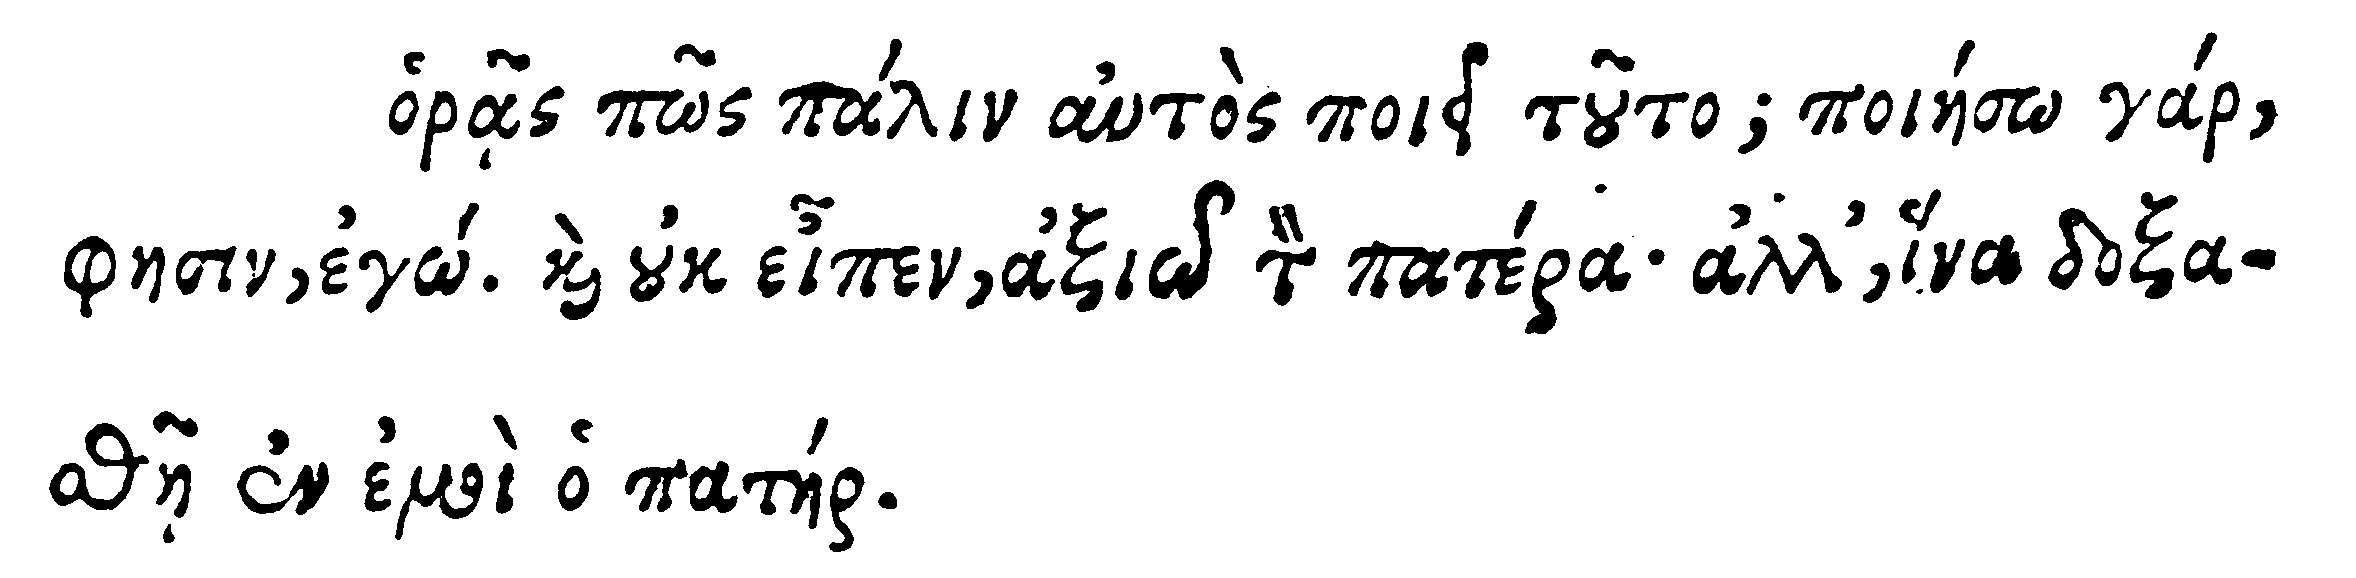 ὁρᾷς πῶς πάλιν αὐτὸς ποιεῖ τοῦτο; ποιήσω γάρ,
φησιν, ἐγώ. καὶ οὐκ εἶπεν, ἀξιώσω τὸν πατέρα· ἀλλ’, ἵνα δοξα-
σθῇ ἐν ἐμοὶ ὁ πατήρ.